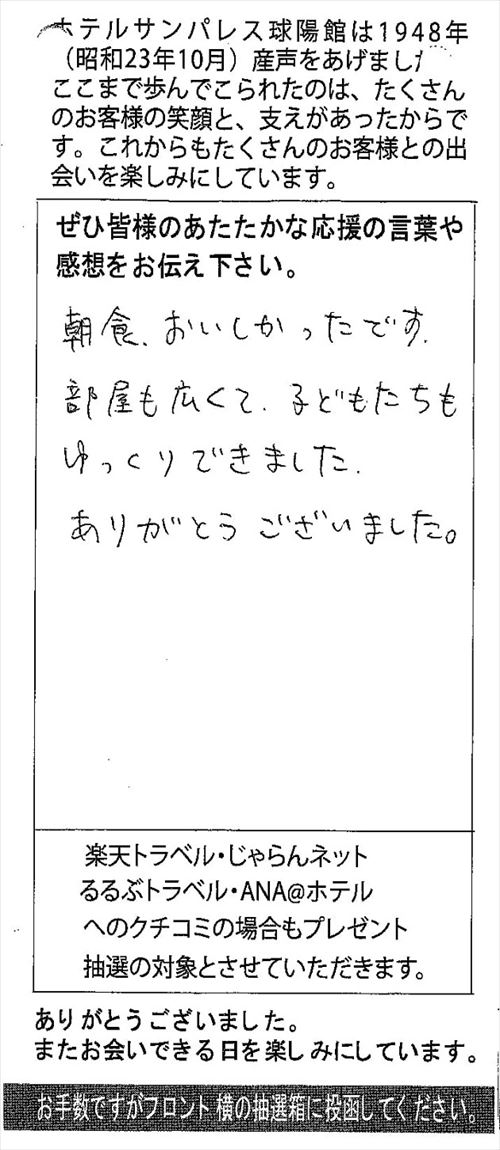 ホテルサンパレス球陽館は1948年
（昭和23年10月）産声をあげまし
ここまで歩んでこられたのは、たくさん
のお客様の笑顔と、支えがあったからで
す。これからもたくさんのお客様との出
会いを楽しみにしています。
ぜひ皆様のあたたかな応援の言葉や
感想をお伝え下さい。
朝食、おいしかったです.
部屋も広くて、子どもたちも
ゆっくりできました.
ありがとうございました。
楽天トラベル・じゃらんネット
るるぶトラベル・ANA@ホテル
へのクチコミの場合もプレゼント
抽選の対象とさせていただきます。
ありがとうございました。
またお会いできる日を楽しみにしています。
お手数ですがフロント横の抽選箱に投函してください。